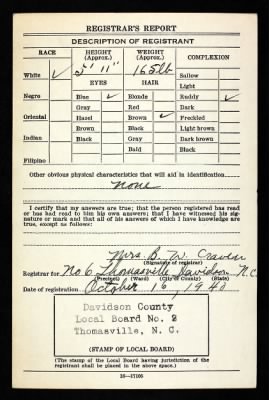 REGISTRAR'S REPORT
DESCRIPTION OF REGISTRANT
RACE HEIGHT (Approx.) WEIGHT (Approx.) COMPLEXION
White ✓ 5' 11" 165 lb Sallow
EYES HAIR Light
Negro Blue ✓ Blonde Ruddy ✓
Gray Red Dark
Oriental Hazel Brown ✓ Freckled
Brown Black Light brown
Indian Black Gray Dark brown
Bald Black
Filipino
Other obvious physical characteristics that will aid in identification
none
I certify that my answers are true; that the person registered has read
or has had read to him his own answers; that I have witnessed his sig-
nature or mark and that all of his answers of which I have knowledge are
true, except as follows:
Mrs. B. W. Craven
(Signature of registrar)
Registrar for No 6 Thomasville Davidson N.C.
(Precinct) (Ward) (City or County) (State)
Date of registration October 16, 1940
Davidson County
Local Board No. 2
Thomasville, N. C.
(STAMP OF LOCAL BOARD)
(The stamp of the Local Board having jurisdiction of the
registrant shall be placed in the above space.)
16—17105